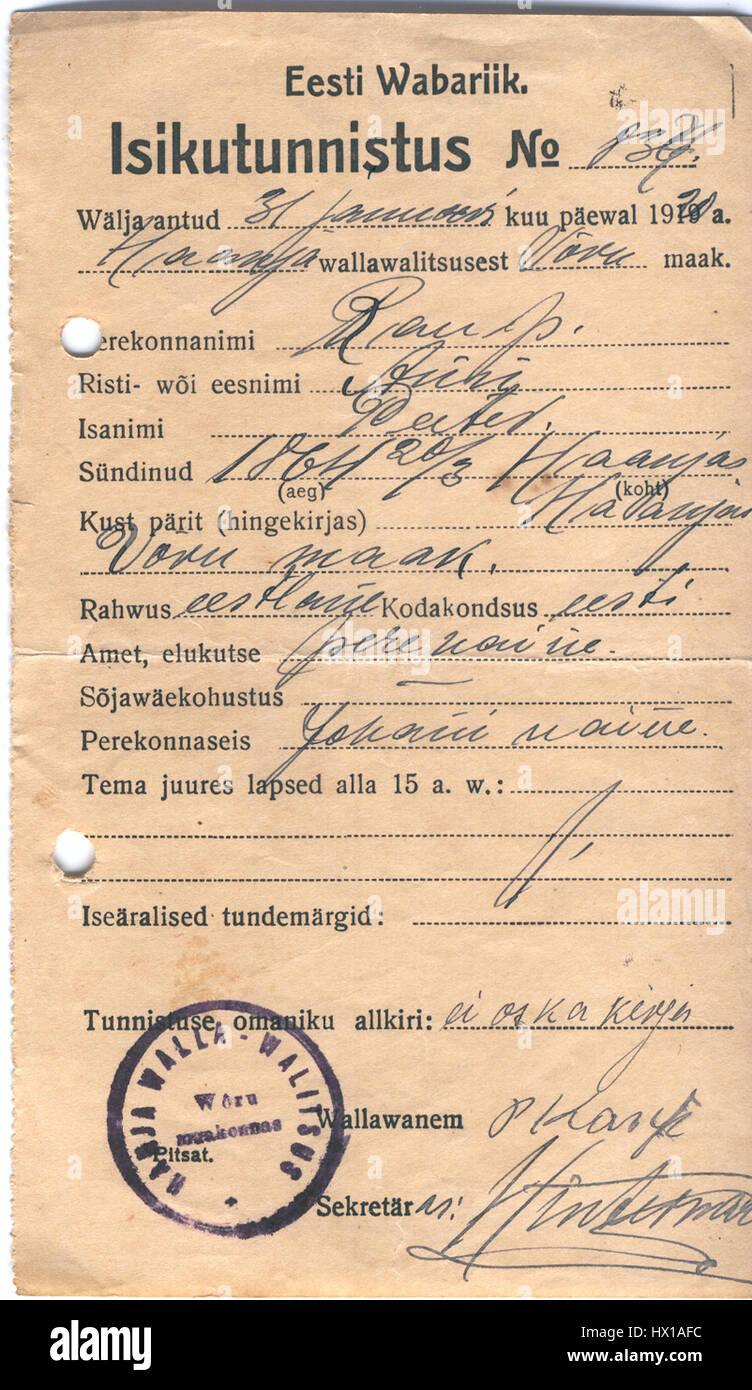 Eesti Wabariik.
Isikutunnistus No
Wälja antud 31 januari kuu päewal 1920 a.
Haanja wallawalitsusest Võru maak.
Perekonnanimi
Risti- wõi eesnimi
Isanimi Peeter.
Sündinud 1864 20/3 Haanjas
(aeg) (koht)
Kust pärit (hingekirjas) Haanjas
Võru maak.
Rahwus eestlane Kodakondsus eesti
Amet, elukutse perenaine.
Sõjawäekohustus —
Perekonnaseis Johani naine.
Tema juures lapsed alla 15 a. w.:
Iseäralised tundemärgid:
Tunnistuse omaniku allkiri: ei oska kirja
HANJA WALLA-WALITSUS
Wõru
maakonnas
Pitsat.
Wallawanem
Sekretär
alamy
Image ID: HX1AFC
www.alamy.com